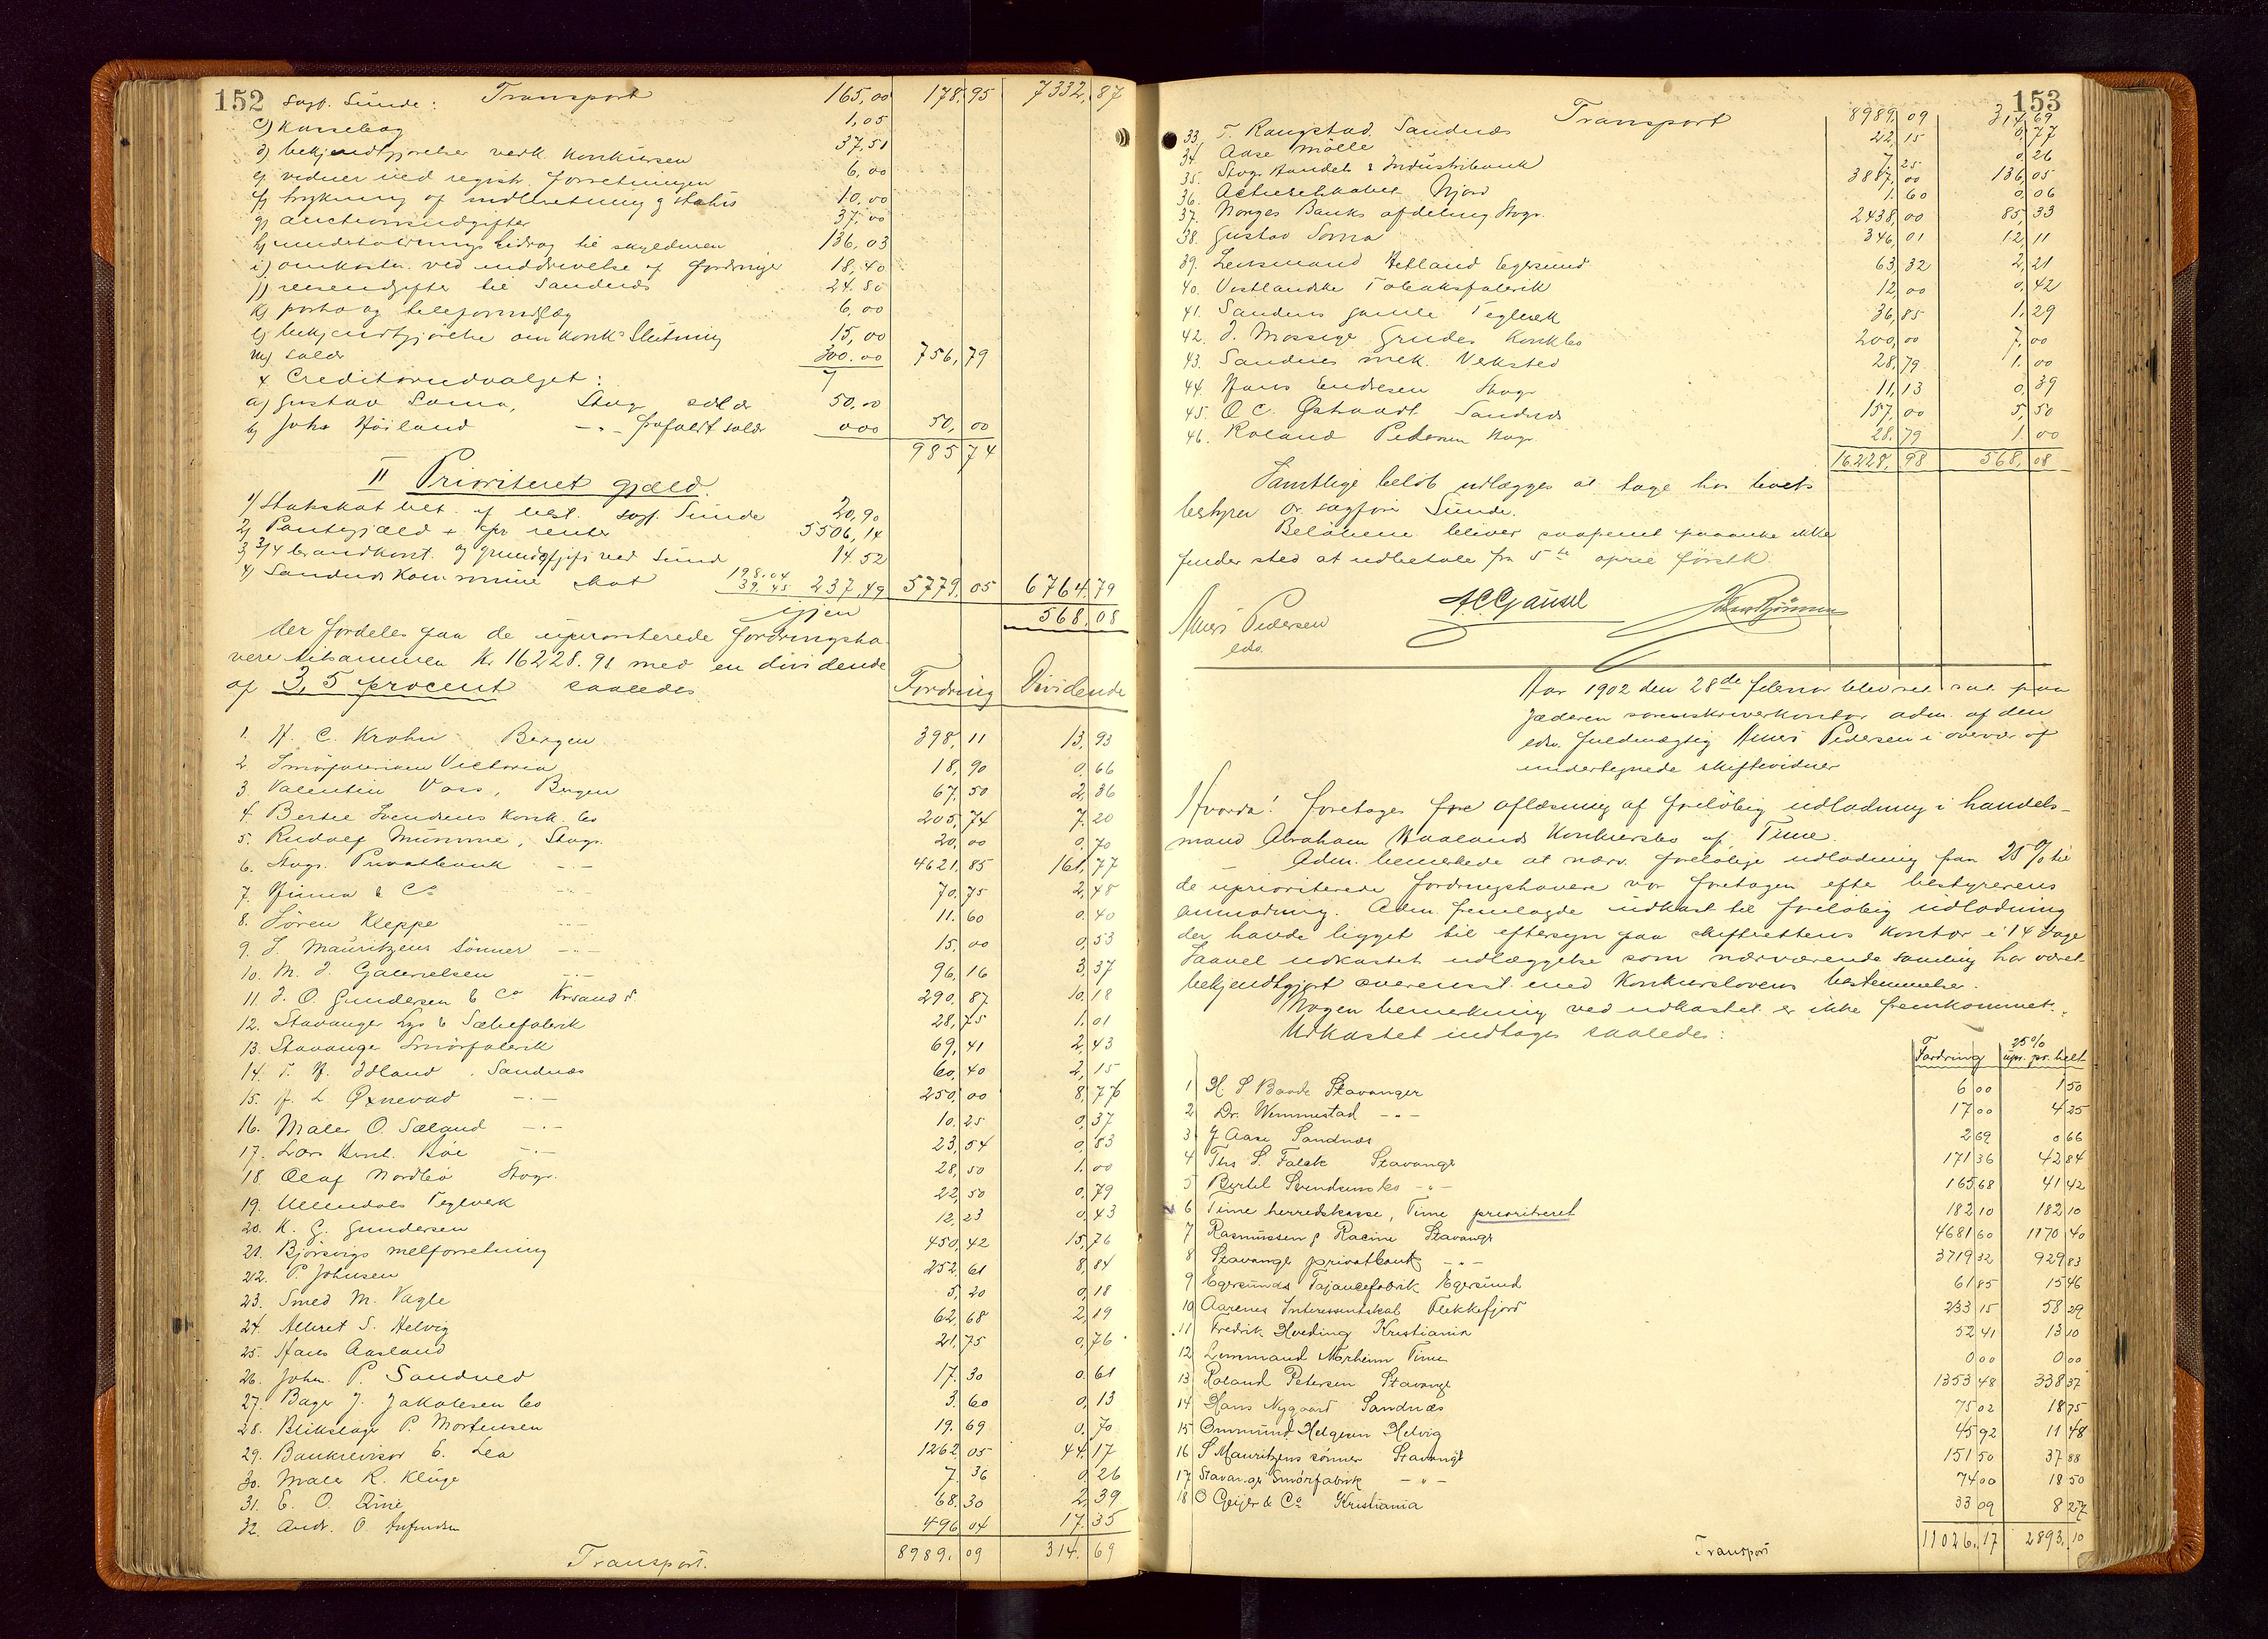 152 sagf. Sunde: Transport 165,00 178,95 7332,87
c) Kassebog 1,05
d) bekjendtgjørelser vedk. Konkursen 37,51
e) vidner ved registr. forretningen 6,00
f) trykning af indberetning og status 10,00
g) auctionsudgifter 37,00
h) underholdnings bidrag til skyldneren 136,03
i) omkostn. ved inddrivelse af fordringer 18,40
j) reiseudgifter til Sandnæs 24.80
k) porto og telefonudlæg 6,00
l) bekjendtgjørelse om konk. Slutning 15,00
m) salær 300.00 756,79
4 Creditorudvalget:
a) Gustav Soma, Stvgr salær 50,00
b) John Høiland -"- frafaldt salær 000 50,00
985,74
II Prioriteret gjæld.
1) Statsskat bet. af best. sagf. Sunde 20,90
2) Pantegjæld + renter 5506,14
3) 3/4 brandkont. og grundafgift ved Sunde 14.52
4) Sandnæs Kommune skat 198.04 39.45 237,49 5779.05 6764.79
igjen 568,08
der fordeles paa de uprioriterede fordringsha-
vere tilsammen Kr 16228.98 med en dividende
af 3,5 procent saaledes Fordring Dividende
1. H. C. Krohn Bergen 398,11 13,93
2. Smørfabriken Victoria 18,90 0,66
3. Valentin Voss, Bergen 67,50 2,36
4. Bertel Svendsens Konk. bo 205,74 7.20
5. Rudolf Mumme, Stvgr. 20,00 0,70
6. Stvgr. Privatbank -"- 4621,85 161,77
7. Hinna & Co -"- 70,75 2,48
8. Søren Kleppe -"- 11.60 0.40
9. S. Mauritzens Sønner -"- 15,00 0,53
10. M. J. Gabrielsen -"- 96,16 3,37
11. J. O. Gundersen & Co Krsand S. 290,87 10,18
12. Stavanger Lys & Sæbefabrik 28,75 1.01
13. Stavanger Smørfabrik 69,41 2,43
14. T. H. Idland, Sandnæs 60,40 2,15
15. J. L. Øxnevad -"- 250,00 8,76
16. Maler O. Sæland -"- 10,25 0,37
17. Lars Berh. Bøe -"- 23,54 0,83
18. Olaf Nordbø Stvgr. 28,50 1.00
19. Ullendals Teglverk 22,50 0,79
20. K. G. Gundersen 12,23 0,43
21. Bjørsvigs melforretning 450,42 15,76
22. P. Johnsen 252,61 8,84
23. Smed M. Vagle 5,20 0,18
24. Albret S. Helvig 62,68 2,19
25. Hans Aasland 21,75 0,76
26. John. P. Sandved 17.30 0.61
27. Bager J. Jakobsen bo 3.60 0,13
28. Blikslager P. Mortensen 19.69 0.70
29. Bankrevisor E. Lea 1262,05 44,17
30. Maler R. Kluge 7.36 0.26
31. E. O. Rue 68.30 2.39
32. Andr. O. 496,04 17.35
Transport. 8989.09 314.69
153
Transport 8989,09 314,69
33. T. Rangstad, Sandnæs 22,15 0,77
34. Aase Mølle 7,25 0,26
35. Stvgr. Handels & Industribank 3887,00 136,05
36. Actieselskabet Njord 1.60 0,06
37. Norges Banks afdeling Stvgr. 2438,00 85,33
38. Gustav Soma 346,01 12,11
39. Lensmand Hetland Egersund 63,32 2,21
40. Vestlandske Tobaksfabrik 12,00 0,42
41. Sandnes gamle Teglverk 36,85 1,29
42. J. Mossige Grudes Konkbo 200,00 7,00
43. Sandnes mek. Verksted 28,79 1.00
44. Hans Endresen Stvgr 11,13 0,39
45. O. C. Østraadt Sandnæs 157,00 5,50
46. Roland Petersen Stvgr. 28.79 1.00
16228,98 568,08
Samtlige beløb udlægges at tage hos boets
bestyrer Or. sagfører Sunde.
Beløbene bliver saafremt paaanke ikke
finder sted at udbetale fra 5te april førstk.
Anders Pedersen A.C. Gausel
eds.
Aar 1902 den 28de februar blev ret sat paa
Jæderen sorenskriverkontor adm. af den
edsv. fuldmægtig Anders Pedersen i overvær af
undertegnede skiftevidner
Hvorda! foretoges fore aflæsning af foreløbig udlodning i handels-
mand Abraham Haalands Konkursbo af Time.
Adm. bemerkede at nærv. foreløbige udlodning paa 25% til
de uprioriterede fordringshavere var foretagen efter bestyrerens
anmodning. Adm. fremlagde udkast til foreløbig udlodning
der havde ligget til eftersyn paa skifterettens kontor i 14 dage
Saavel udkastets udlæggelse som nærværende samling har været
bekjendtgjort overensst. med Konkurslovens bestemmelser.
Nogen bemerkning ved udkastet er ikke fremkommet.
Udkastet indtages saaledes:
Fordring 25% upr. pr. helt
1 H. S Baade Stavanger 6 00 1 50
2 Dr. Wennestad -"- 17 00 4 25
3 J Aase Sandnæs 2 69 0 66
4 Ths S. Falck Stavanger 171 36 42 84
5 Bertel Svendsens bo -"- 165 68 41 42
6 Time herredskasse, Time prioriteret 182 10 182 10
7 Rasmussen & Racine Stavanger 4681 60 1170 40
8 Stavanger privatbank -"- 3719 32 929 83
9 Egersunds Fajancefabrik Egersund 61 85 15 46
10 Aarenes Interessentskab Flekkefjord 233 15 58 29
11 Fredrik Hveding Kristiania 52 41 13 10
12 Lensmand Norheim Time 0 00 0 00
13 Roland Petersen Stavanger 1353 48 338 37
14 Hans Nygaard Sandnæs 75 02 18 75
15 Ommund Helgesen Helvig 45 92 11 48
16 S Mauritzens sønner Stavanger 151 50 37 88
17 Stavanger Smørfabrik -"- 74 00 18 50
18 O Geijer & Co Kristiania 33 09 8 27
Transport 11026,17 2893,10